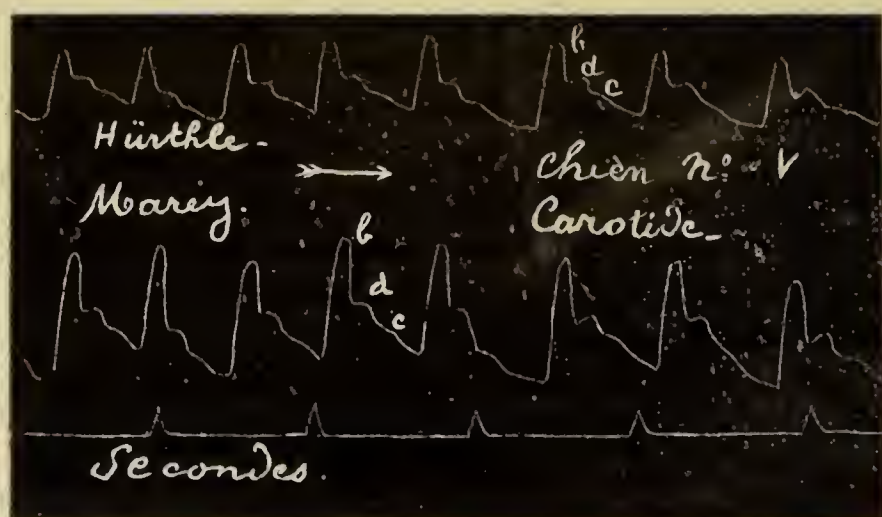 b
d
c
Hürthle-
Marey.
Chien nº V
Carotide_
b
d
c
Secondes.